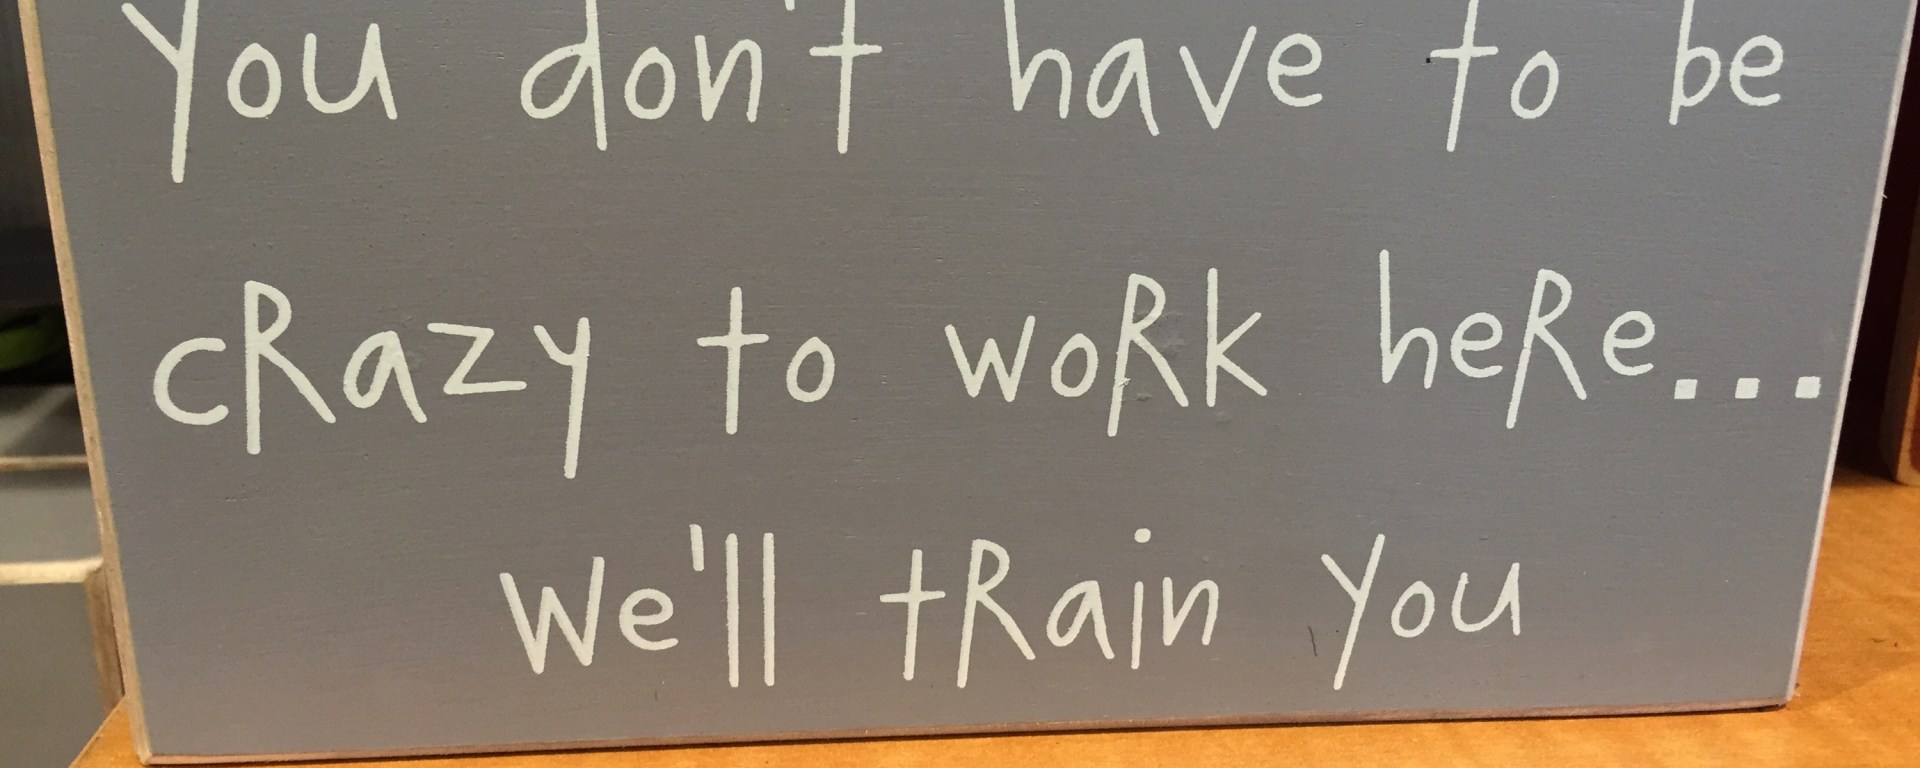 You don't have to be
cRazy to woRk heRe...
We'll tRain You